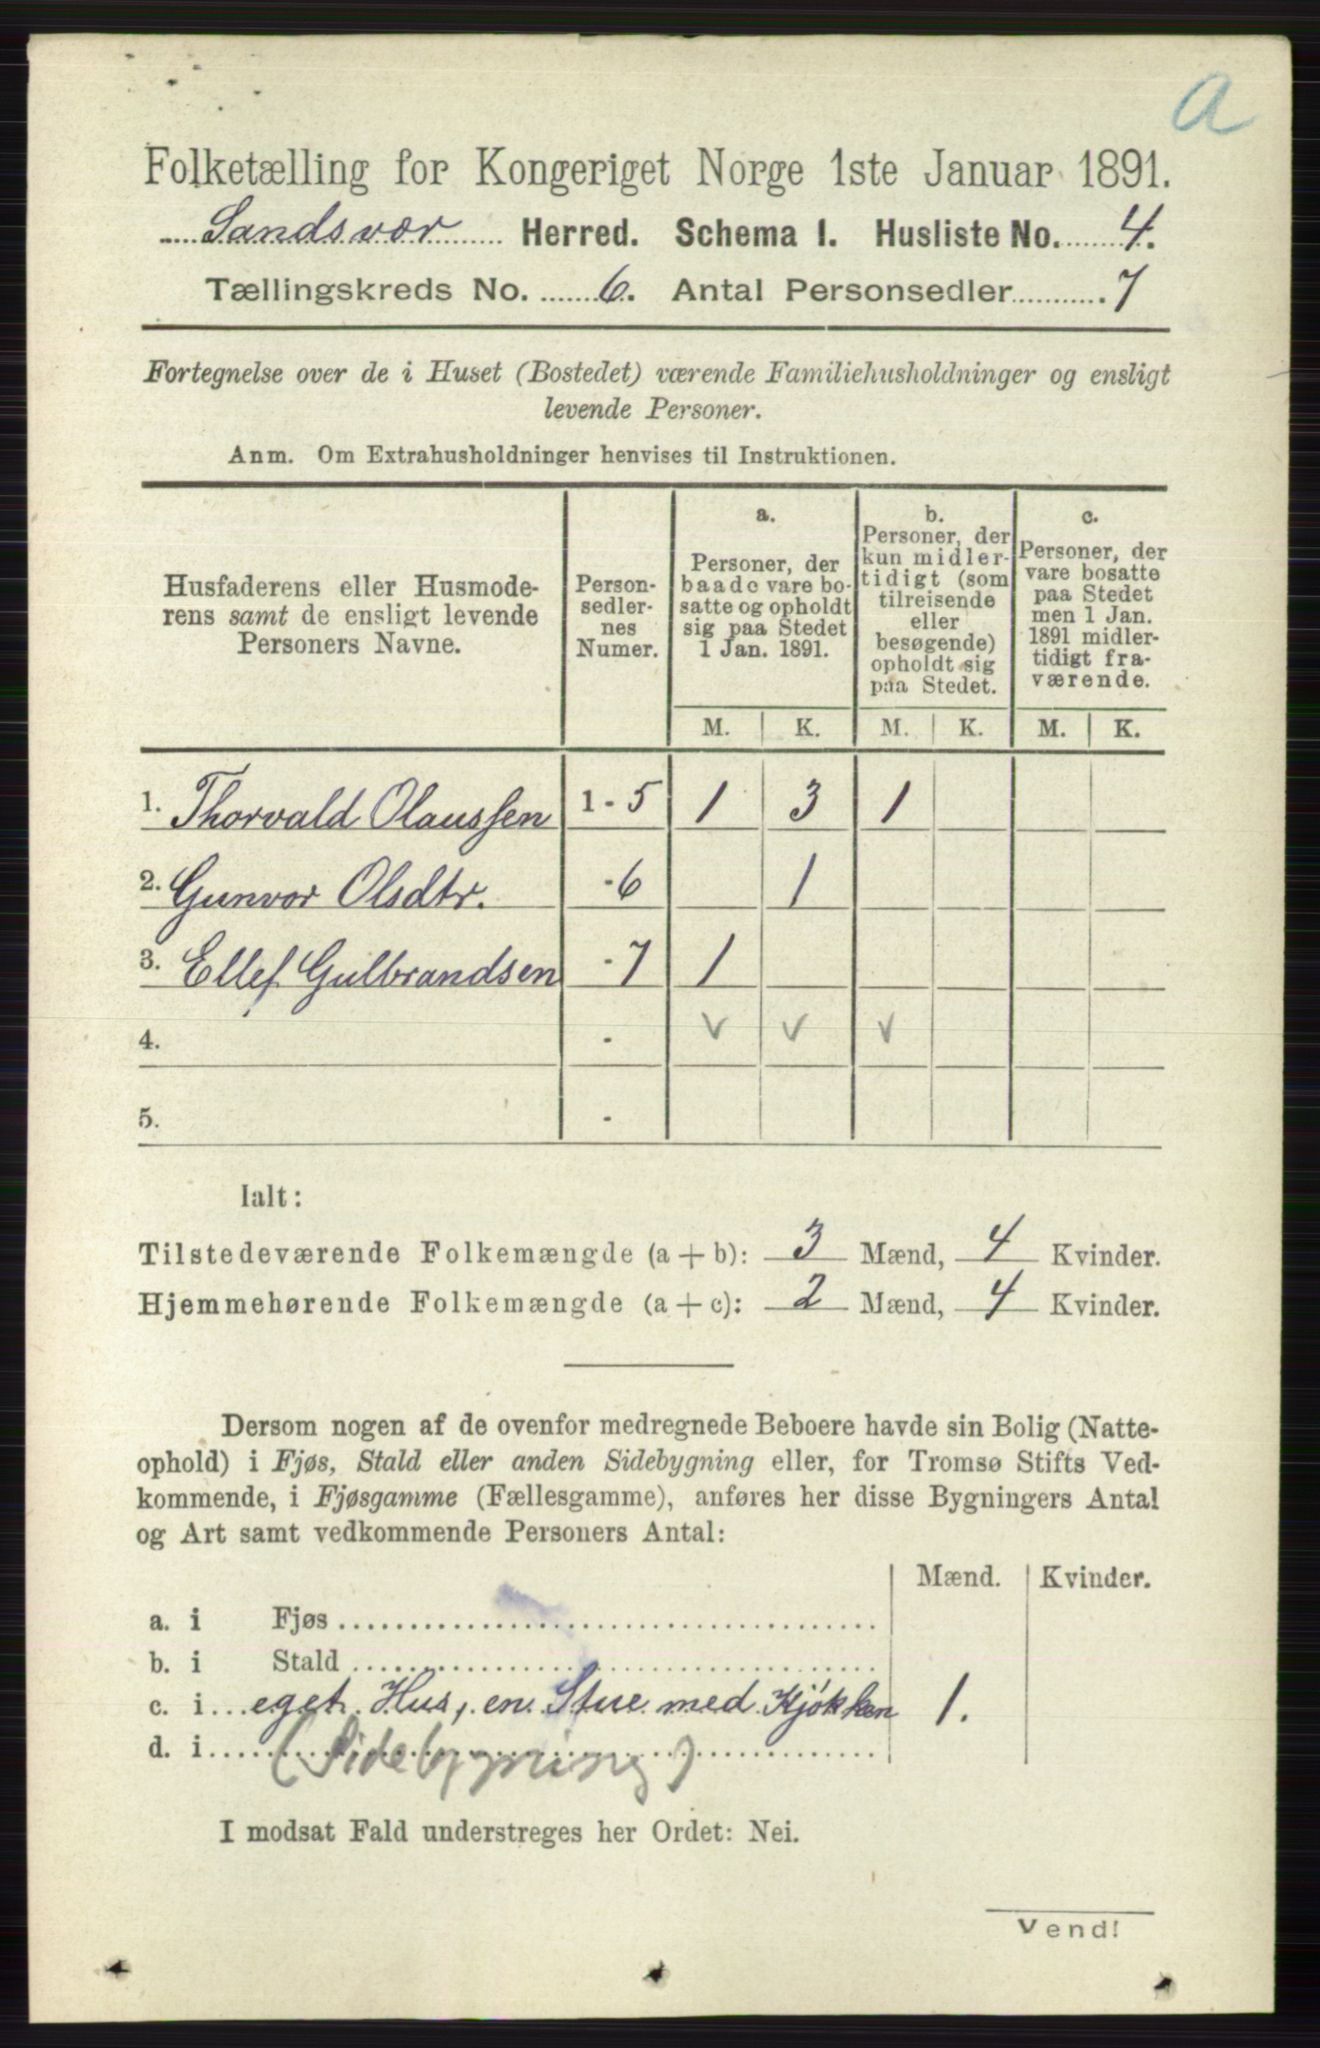 a
Folketælling for Kongeriget Norge 1ste Januar 1891.
Sandsvær Herred. Schema I. Husliste No. 4.
Tællingskreds No. 6. Antal Personsedler 7
Fortegnelse over de i Huset (Bostedet) værende Familiehusholdninger og ensligt
levende Personer.
Anm. Om Extrahusholdninger henvises til Instruktionen.
Husfaderens eller Husmode-
rens samt de ensligt levende
Personers Navne.
Person-
sedler-
nes
Numer.
a.
Personer, der
baade vare bo-
satte og opholdt
sig paa Stedet
1 Jan. 1891.
b.
Personer, der
kun midler-
tidigt (som
tilreisende
eller
besøgende)
opholdt sig
paa Stedet.
c.
Personer, der
vare bosatte
paa Stedet
men 1 Jan.
1891 midler-
tidigt fra-
værende.
M. K. M. K. M. K.
1. Thorvald Olaussen 1-5 1 3 1
2. Gunvor Olsdtr. -6 1
3. Ellef Gulbrandsen -7 1
4. - v v v
5. -
Ialt:
Tilstedeværende Folkemængde (a + b): 3 Mænd, 4 Kvinder.
Hjemmehørende Folkemængde (a + c): 2 Mænd, 4 Kvinder.
Dersom nogen af de ovenfor medregnede Beboere havde sin Bolig (Natte-
ophold) i Fjøs, Stald eller anden Sidebygning eller, for Tromsø Stifts Ved-
kommende, i Fjøsgamme (Fællesgamme), anføres her disse Bygningers Antal
og Art samt vedkommende Personers Antal:
Mænd. Kvinder.
a. i Fjøs
b. i Stald
c. i eget Hus, en Stue med Kjøkken 1.
d. i (Sidebygning)
I modsat Fald understreges her Ordet: Nei.
Vend!